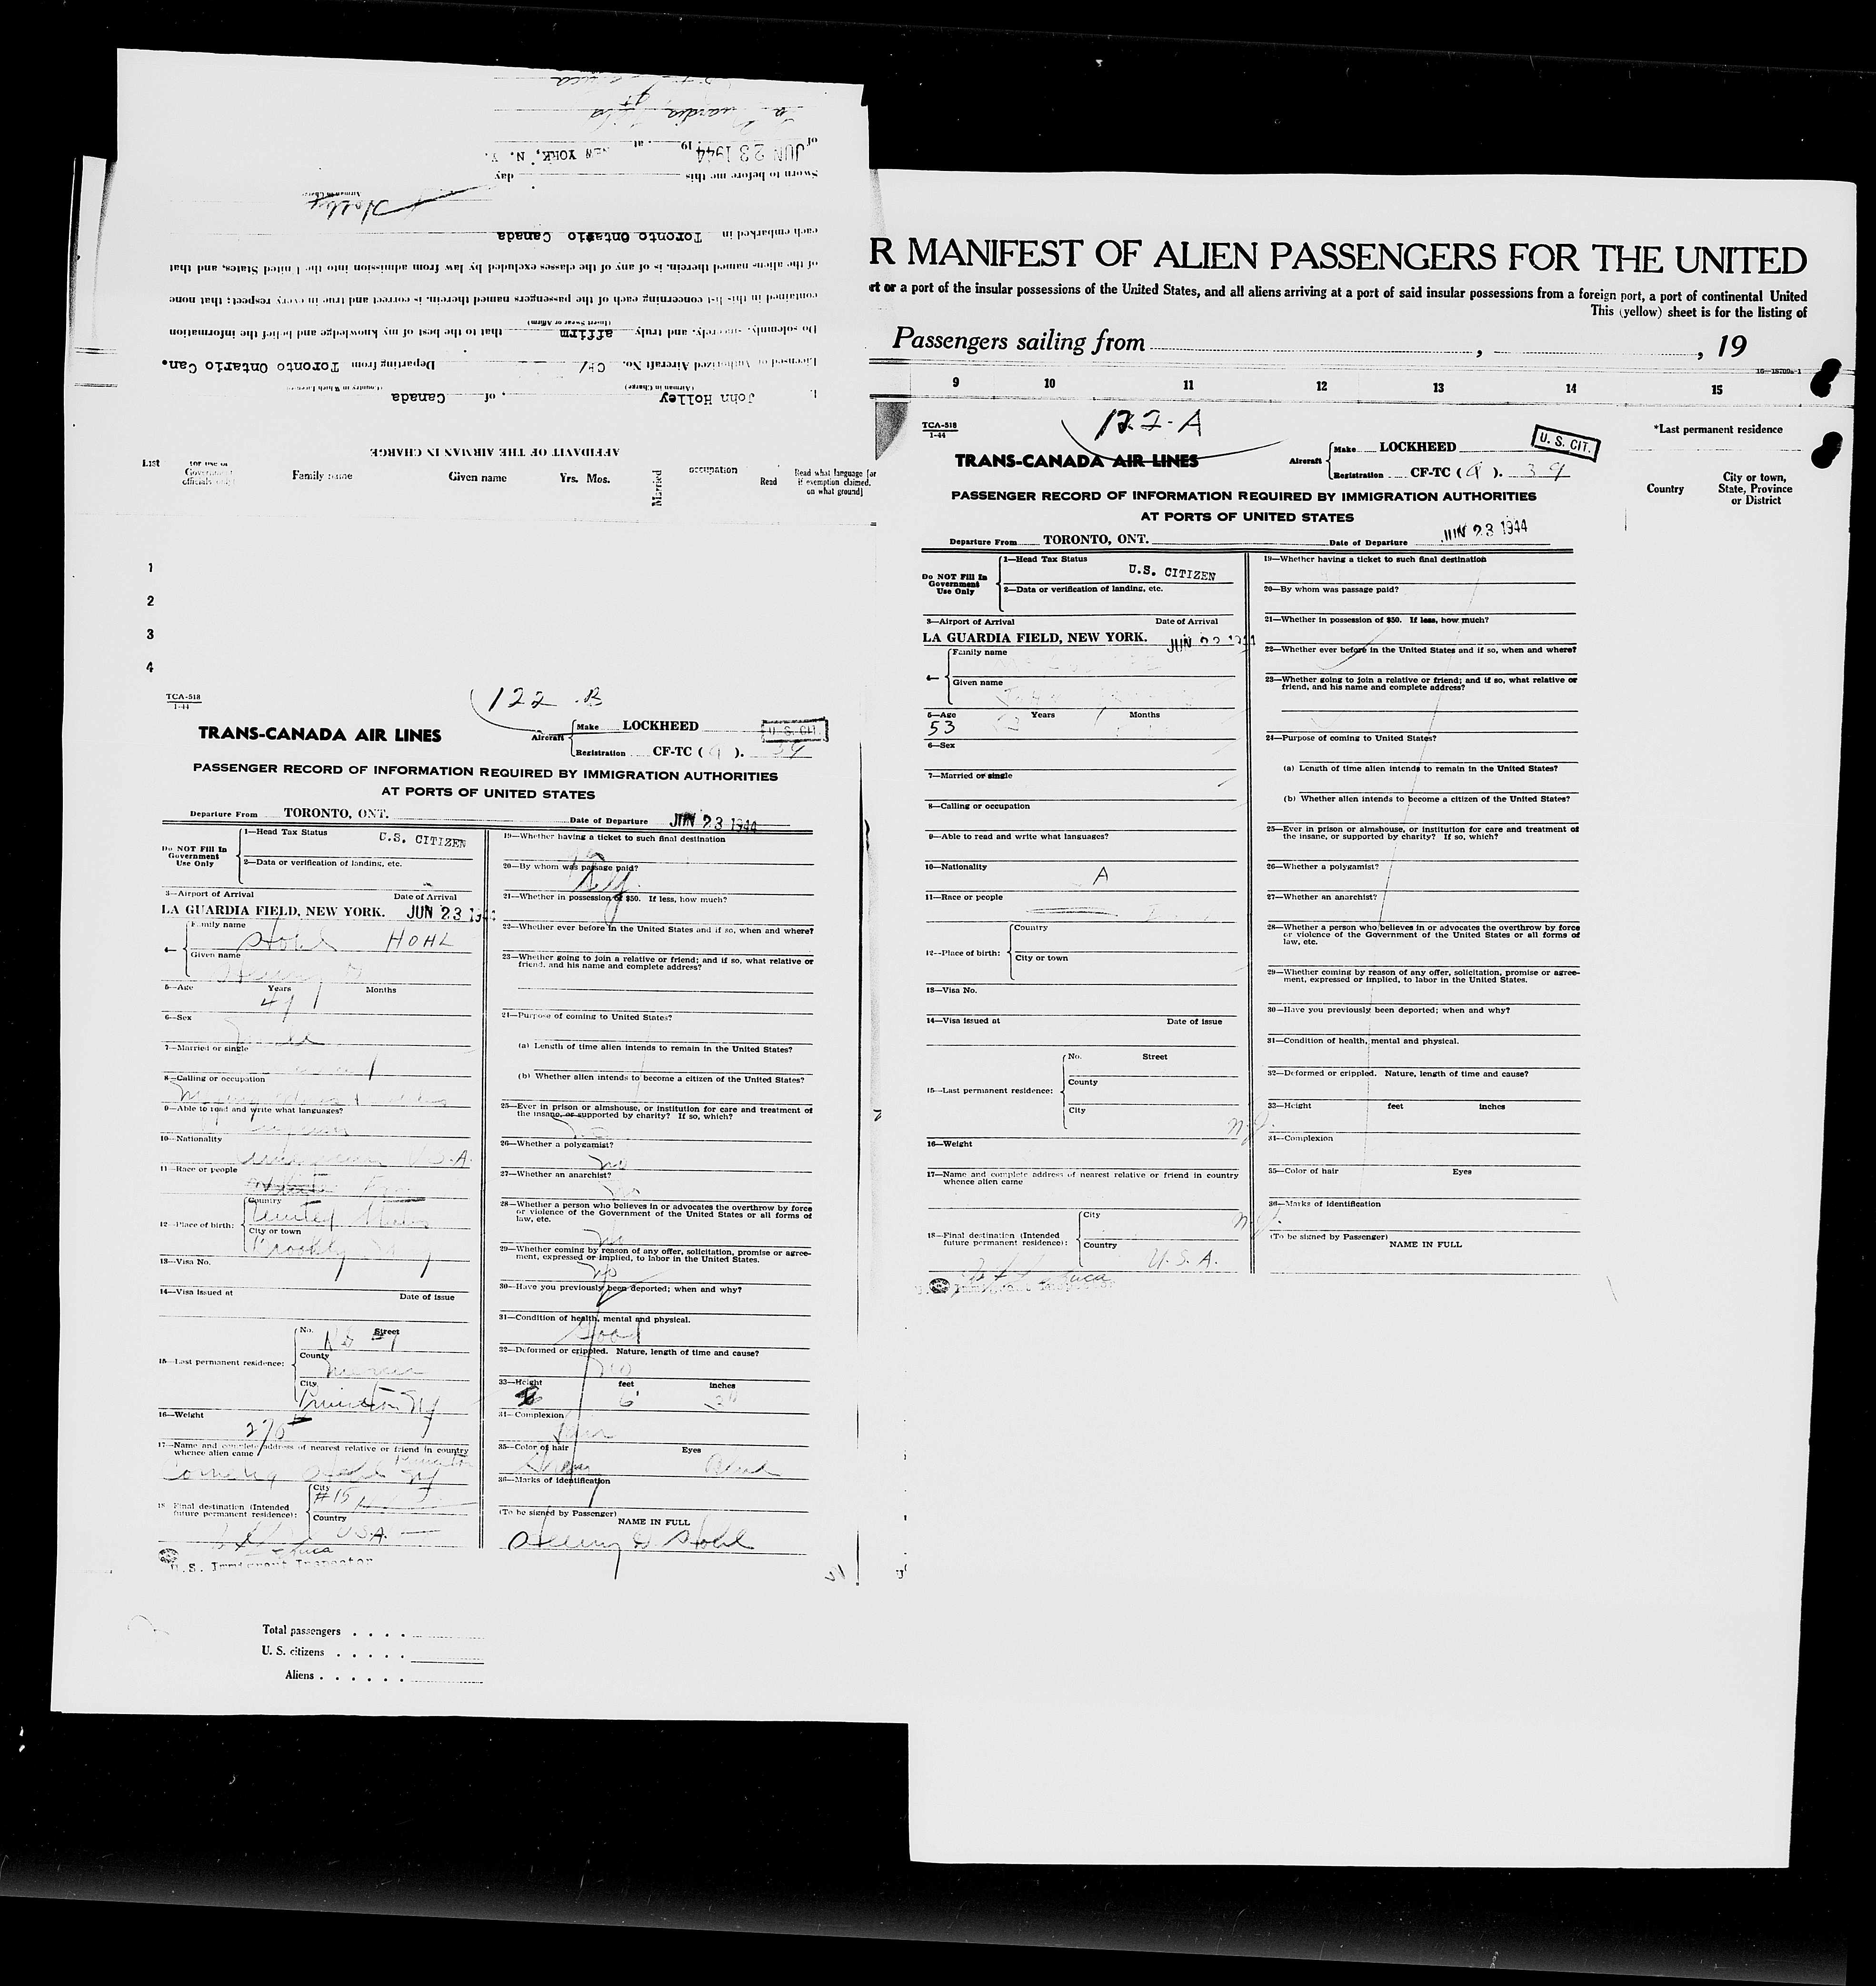 Sworn to before me this day
of JUN 23 1944 19 at NEW YORK, N. Y.
Holley
Airman in Charge
each embarked in Toronto Ontario Canada
of the aliens named therein, is of any of the classes excluded by law from admission into the United States, and that
contained in this list concerning each of the passengers named therein, is correct and true in every respect; that none
Do solemnly, sincerely, and truly affirm that to the best of my knowledge and belief the information
(Insert Swear or Affirm)
Licensed or Authorized Aircraft No. CF/ Departing from Toronto Ontario Can.
(Airman in Charge) (Country in Which Licensed)
I, John Holley, of Canada
AFFIDAVIT OF THE AIRMAN IN CHARGE
List
for use of
Government
officials only
Family name
Given name
Yrs. Mos.
Married
occupation
Read
Read what language [or
if exemption claimed,
on what ground]
1
2
3
4
TCA-518
1-44
122 B
TRANS-CANADA AIR LINES
Aircraft
Make LOCKHEED
Registration CF-TC ( ). 39
U. S. CIT.
PASSENGER RECORD OF INFORMATION REQUIRED BY IMMIGRATION AUTHORITIES
AT PORTS OF UNITED STATES
Departure From TORONTO, ONT. Date of Departure JUN 23 1944
Do NOT Fill In
Government
Use Only
1—Head Tax Status U.S. CITIZEN
2—Data or verification of landing, etc.
3—Airport of Arrival Date of Arrival
LA GUARDIA FIELD, NEW YORK. JUN 23 194
4—
Family name Hohl HOHL
Given name Henry
5—Age Years Months
6—Sex
7—Married or single
8—Calling or occupation
9—Able to read and write what languages?
10—Nationality American U.S.A.
11—Race or people
12—Place of birth:
Country United States
City or town Brooklyn
13—Visa No.
14—Visa issued at Date of issue
15—Last permanent residence:
No. Street
County Mercer
City Princeton NJ
16—Weight
17—Name and complete address of nearest relative or friend in country
whence alien came
Hohl Princeton NJ
18—Final destination (Intended
future permanent residence):
City #15
Country U.S.A.
U.S. Immigrant Inspector
19—Whether having a ticket to such final destination
20—By whom was passage paid?
21—Whether in possession of $50. If less, how much?
22—Whether ever before in the United States and if so, when and where?
23—Whether going to join a relative or friend; and if so, what relative or
friend, and his name and complete address?
24—Purpose of coming to United States?
(a) Length of time alien intends to remain in the United States?
(b) Whether alien intends to become a citizen of the United States?
25—Ever in prison or almshouse, or institution for care and treatment of
the insane, or supported by charity? If so, which?
26—Whether a polygamist?
no
27—Whether an anarchist?
no
28—Whether a person who believes in or advocates the overthrow by force
or violence of the Government of the United States or all forms of
law, etc.
no
29—Whether coming by reason of any offer, solicitation, promise or agree-
ment, expressed or implied, to labor in the United States.
no
30—Have you previously been deported; when and why?
31—Condition of health, mental and physical.
Good
32—Deformed or crippled. Nature, length of time and cause?
no
33—Height feet inches
6
34—Complexion
Fair
35—Color of hair Eyes
36—Marks of identification
(To be signed by Passenger)
NAME IN FULL
Henry Hohl
Total passengers
U. S. citizens
Aliens
R MANIFEST OF ALIEN PASSENGERS FOR THE UNITED
rt or a port of the insular possessions of the United States, and all aliens arriving at a port of said insular possessions from a foreign port, a port of continental United
This (yellow) sheet is for the listing of
Passengers sailing from , , 19
9 10 11 12 13 14 15
*Last permanent residence
Country
City or town,
State, Province
or District
TCA-518
1-44
122-A
TRANS-CANADA AIR LINES
Aircraft
Make LOCKHEED
Registration CF-TC (Q). 39
U. S. CIT.
PASSENGER RECORD OF INFORMATION REQUIRED BY IMMIGRATION AUTHORITIES
AT PORTS OF UNITED STATES
Departure From TORONTO, ONT. Date of Departure JUN 23 1944
Do NOT Fill In
Government
Use Only
1—Head Tax Status U.S. CITIZEN
2—Data or verification of landing, etc.
3—Airport of Arrival Date of Arrival
LA GUARDIA FIELD, NEW YORK. JUN 23 1944
4—
Family name
Given name
5—Age Years Months
53
6—Sex
7—Married or single
8—Calling or occupation
9—Able to read and write what languages?
10—Nationality
A
11—Race or people
12—Place of birth:
Country
City or town
13—Visa No.
14—Visa issued at Date of issue
15—Last permanent residence:
No. Street
County
City
N.J.
16—Weight
17—Name and complete address of nearest relative or friend in country
whence alien came
18—Final destination (Intended
future permanent residence):
City N.J.
Country U.S.A.
19—Whether having a ticket to such final destination
20—By whom was passage paid?
21—Whether in possession of $50. If less, how much?
22—Whether ever before in the United States and if so, when and where?
23—Whether going to join a relative or friend; and if so, what relative or
friend, and his name and complete address?
24—Purpose of coming to United States?
(a) Length of time alien intends to remain in the United States?
(b) Whether alien intends to become a citizen of the United States?
25—Ever in prison or almshouse, or institution for care and treatment of
the insane, or supported by charity? If so, which?
26—Whether a polygamist?
27—Whether an anarchist?
28—Whether a person who believes in or advocates the overthrow by force
or violence of the Government of the United States or all forms of
law, etc.
29—Whether coming by reason of any offer, solicitation, promise or agree-
ment, expressed or implied, to labor in the United States.
30—Have you previously been deported; when and why?
31—Condition of health, mental and physical.
32—Deformed or crippled. Nature, length of time and cause?
33—Height feet inches
34—Complexion
35—Color of hair Eyes
36—Marks of identification
(To be signed by Passenger)
NAME IN FULL